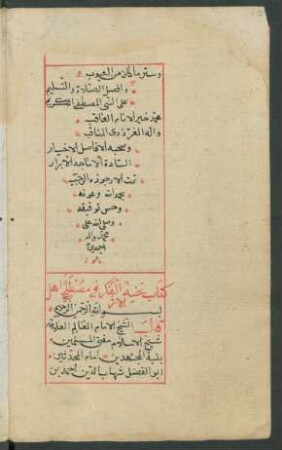 وستر ما كان من العيوب
وافضل الصلاة والتسليم
على النبي المصطفى الكريم
محمد خير الانام العاقب
واله الغر ذوى المناقب
وصحبه الافاضل الاخيار
السادة الاماجد الابرار
تمت الارجوزه الرحبيه
بحمد الله وعونه
وحسن توفيقه
وصلى الله على
محمد واله
اجمعين
كتاب نخبة الفكر في مصطلح اهل
الاثر
بسم الله الرحمن الرحيم
قال الشيخ الامام العالم العلامة
شيخ الاسلام مفتى المسلمين
بقية المجتهدين امام المحدثين
ابو الفضل شهاب الدين احمد بن